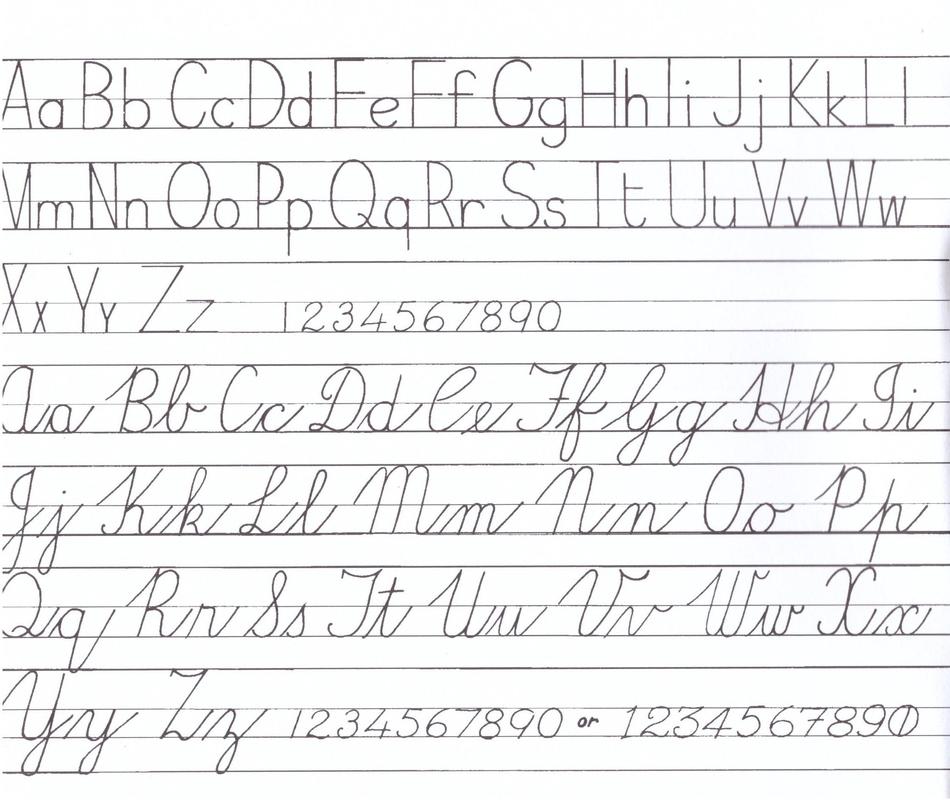 Aa Bb Cc Dd Ee Ff Gg Hh Ii Jj Kk Ll
Mm Nn Oo Pp Qq Rr Ss Tt Uu Vv Ww
Xx Yy Zz 1234567890
Aa Bb Cc Dd Ee Ff Gg Hh Ii
Jj Kk Ll Mm Nn Oo Pp
Qq Rr Ss Tt Uu Vv Ww Xx
Yy Zz 1234567890 or 1234567890